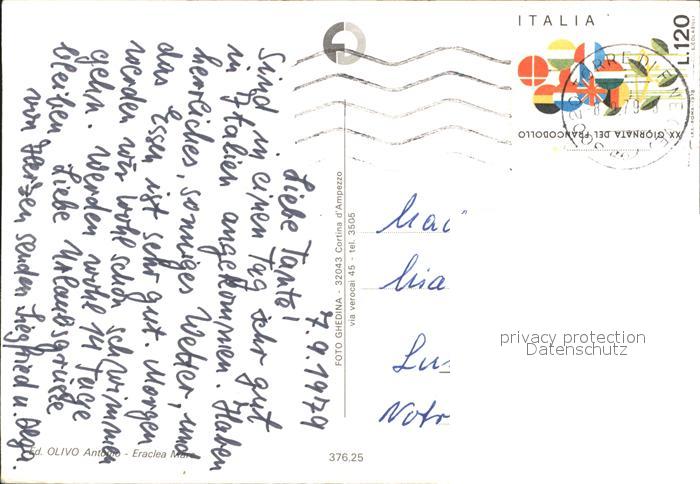 7.9.1979
Liebe Tante!
Sind in einen Tag sehr gut
in Italien angekommen. Haben
herrliches, sonniges Wetter, und
das Essen ist sehr gut. Morgen
werden wir wohl schon schwimmen
gehn. Werden wohl 14 Tage
bleiben. Liebe Urlaubsgrüße
von Herzen senden Siegfried u. Olga.
Ed. OLIVO Antonio - Eraclea Mare
376,25
FOTO GHEDINA - 32043 Cortina d'Ampezzo
via verocai 45 - tel. 3505
ITALIA
L.120
XX GIORNATA DEL FRANCOBOLLO
privacy protection
Datenschutz